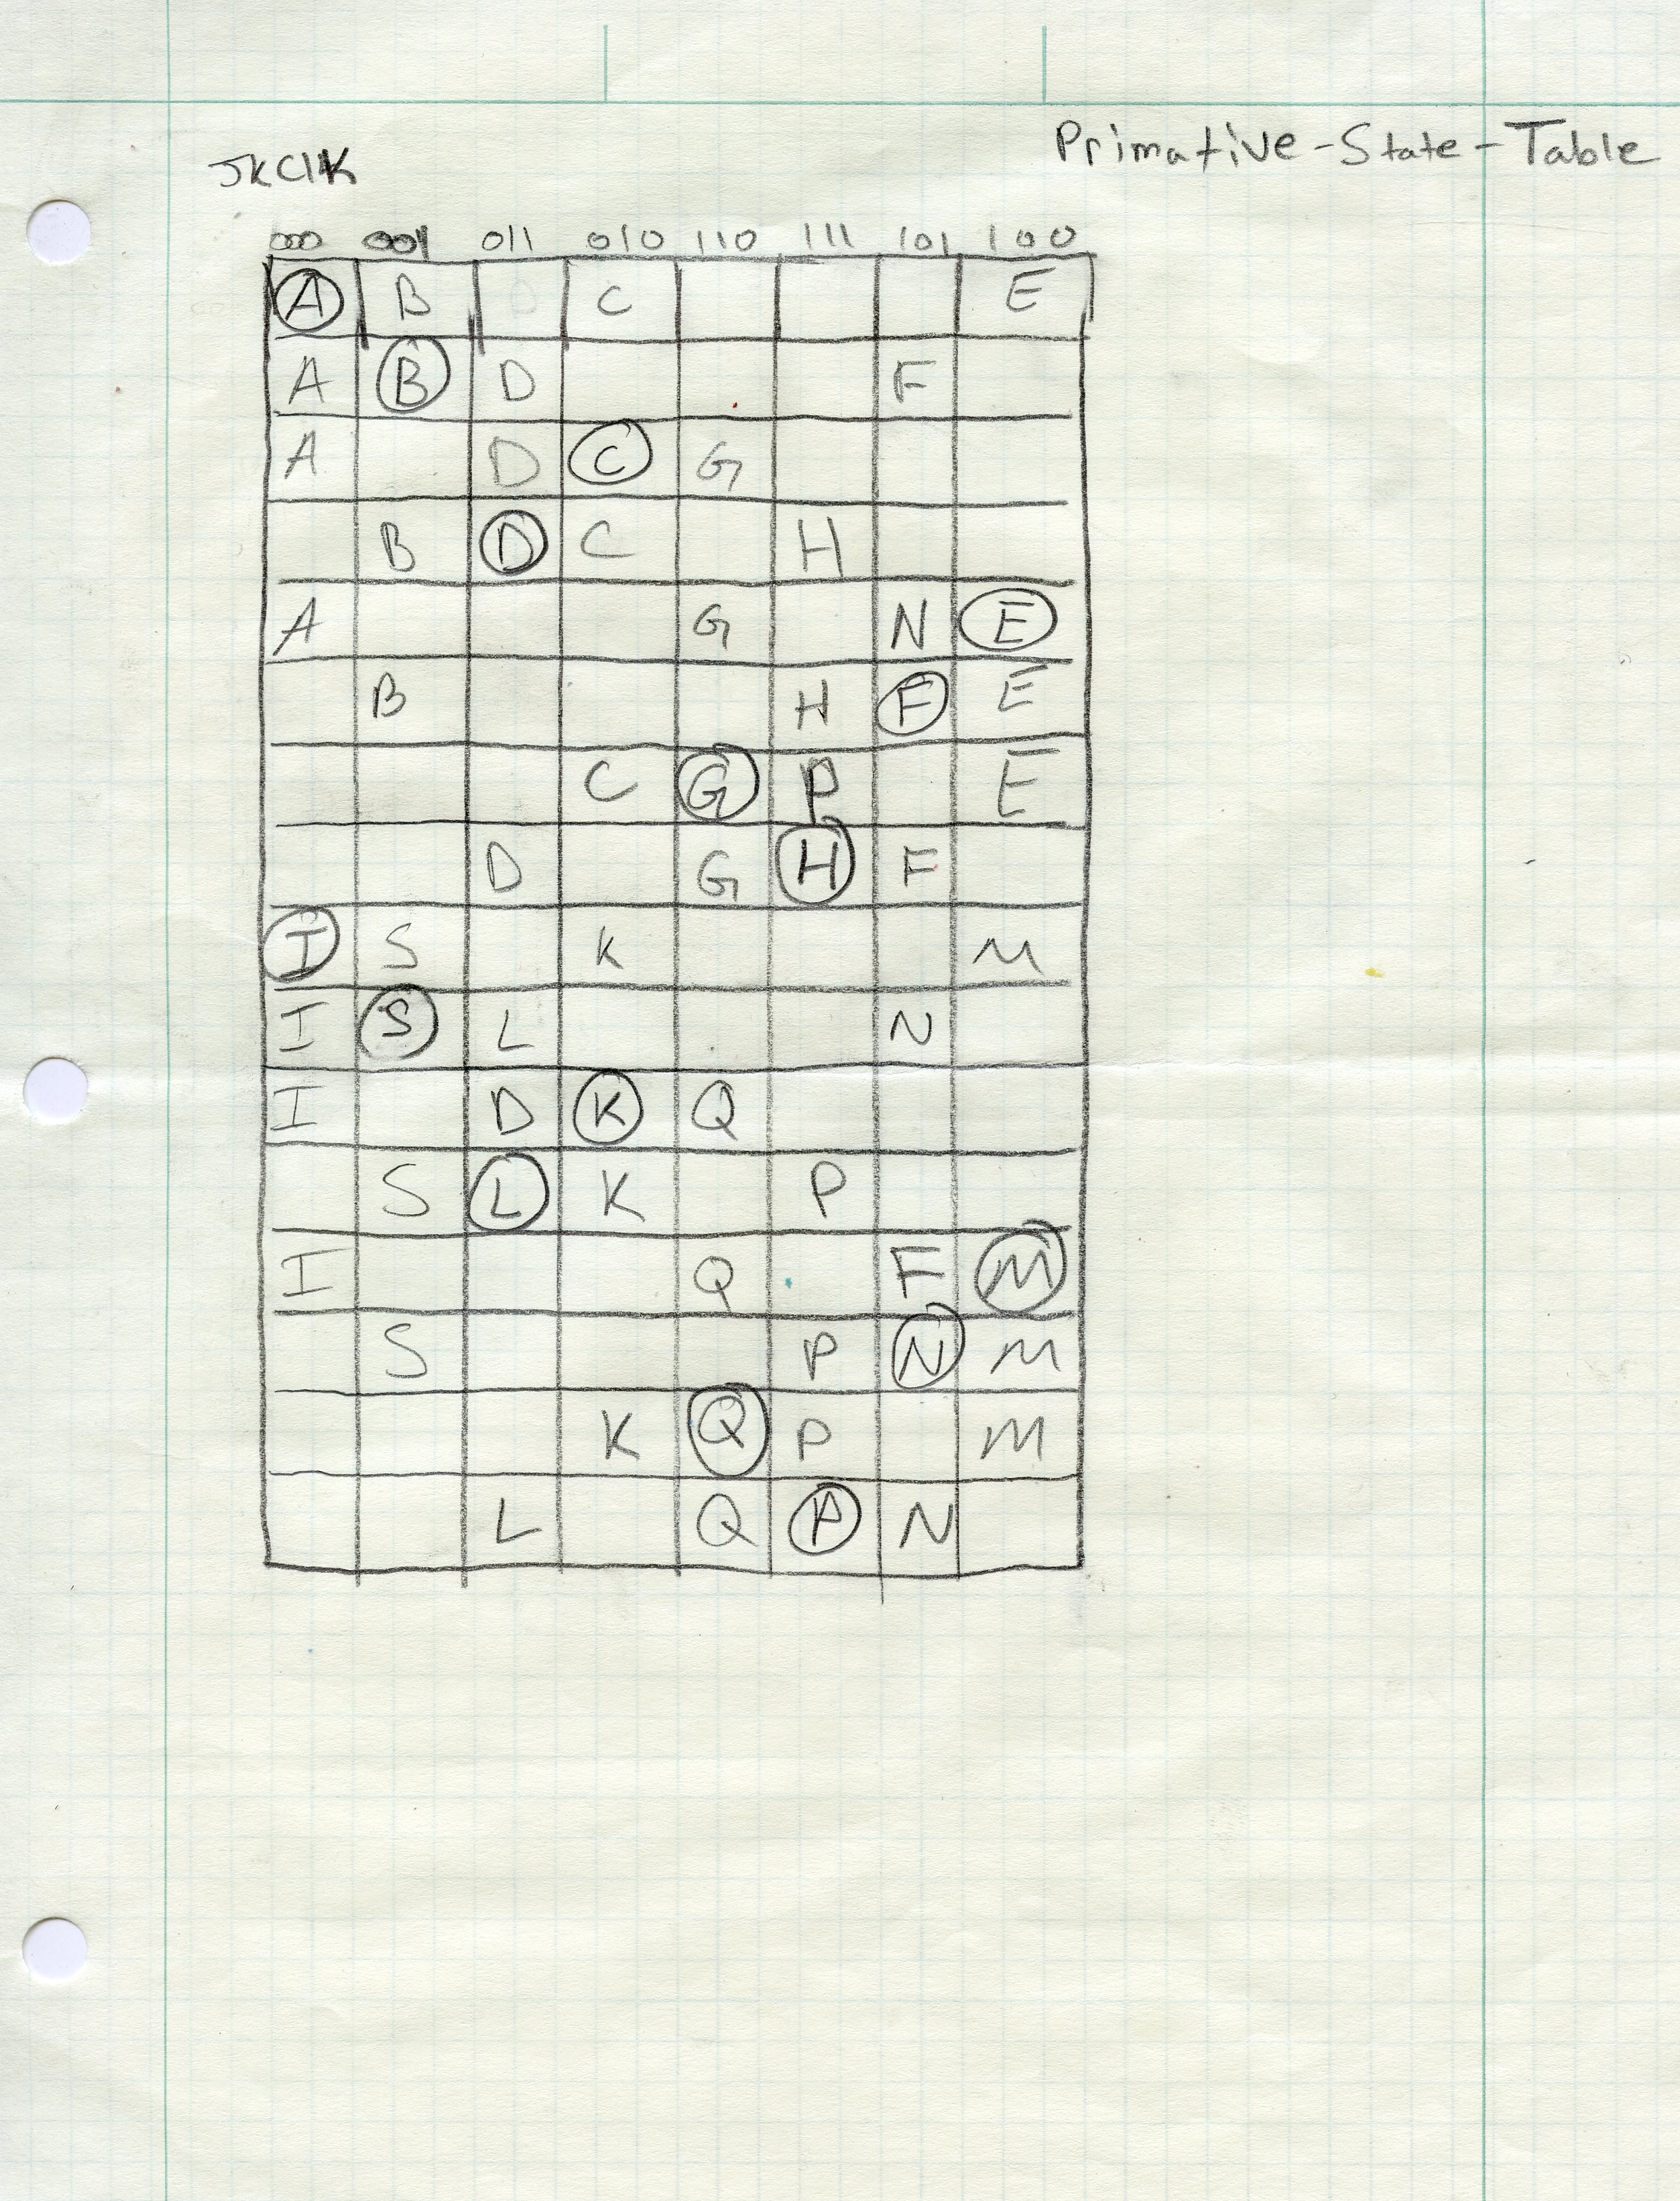 Primative-State-Table
JKClK
000 001 011 010 110 111 101 100
A B C E
A B D F
A D C G
B D C H
A G N E
B H F E
C G P E
D G H F
I S K M
I S L N
I D K Q
S L K P
I Q F M
S P N M
K Q P M
L Q P N